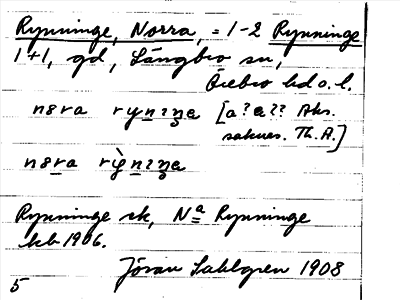 Rynninge, Norra, = 1-2 Rynninge
1+1, gd, Längbro sn,
Örebro hd o. l.
nɜra rynɪŋe [a? e?? Aks.
saknas. Th. A.]
nɜra rỳnɪŋe
Rynninge sk, Nª Rynninge
kb 1906.
Jöran Sahlgren 1908
5